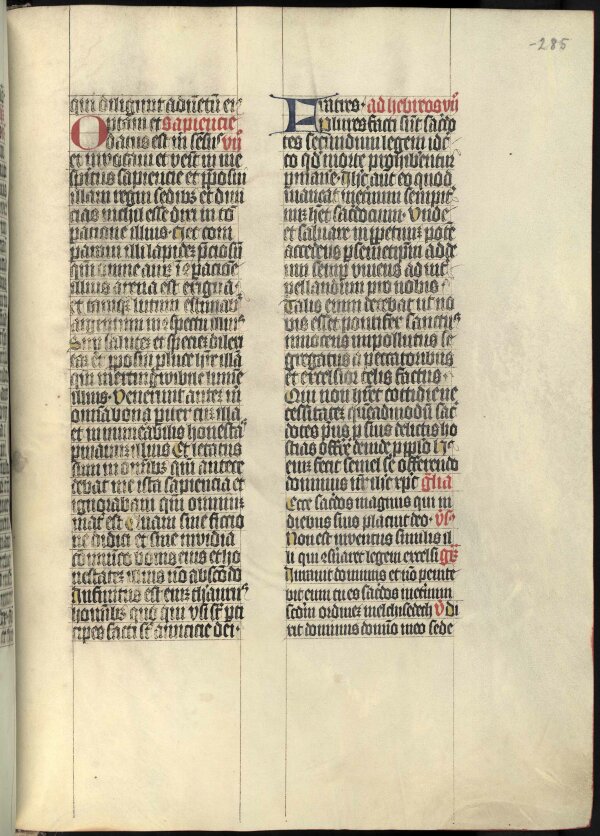 -285
qui diligunt aduētū ei
Optaui et sapiencie
datus est m̄ sensꝰ vii
et inuocaui et venit in me
spiritus sapiencie et p̄posui
illam regnis sedibꝫ et diui
cias nichil esse dixi in cō
paracione illius. Nec com
paraui illi lapidē p̄ciosū
qm̄ omne aurū ī cōparacōe
illius arena est exigua
et tamqꝫ lutum estimabit̄
argentum in cōspectu illiꝰ
Suꝑ salutē et speciē dilexi
eā et p̄posui ꝓ luce hr̄e illā
qm̄ inextingwibile lumē
illius. Venerunt autē m̄
omia bona piter cū illa
et innūerabilis honestas
ꝑ manꝰ illius Et letatus
sum in omībꝫ qm̄ antece
debat me ista sapiencia et
ignorabam qm̄ omniū
mater est Quam sine fictio
ne didici et sine inuidia
cōmunico bonis eius et ho
nestatē illius nō abscōdo
Infinitus est eni thezaurꝰ
hominibꝫ quo qui vsi sūt ꝑti
cipes facti sūt amicicie dei.
Fratres. ad hebreos vii
plures facti sūt sacꝰdo
tes secundum legem idc̄
co qd̄ morte prohiberentur
ꝑmanere. Ihc̄ aūt eo quod
maneat ineternum sempit̄
num hꝫ sacerdocium. Vnde
et saluare in ꝑpetuū potē
accedens ꝑ semetipm̄ ad de
um semꝑ viuens ad int̄
pellandum pro nobis.
Talis enim decebat vt no
bis esset pontifex sanctus
innocens impollutus se
gregatus a peccatoribus
et excelsior celis factus.
Qui non habet cotidie ne
cessitatē quēadmodū sac̄
dotes priꝰ ꝓ suis delictis ho
stias offerre deinde ꝓ ppl̄o h
enī fecit semel se offerendo
dominus nr̄ ihc̄ xpc̄ Gl̄ia
Ecce sac̄dos magnus qui in
diebus suis placuit deo. vs.
Non est inuentus similis il
li qui cōseruaret legem excelsi Gr̄
Iurauit dominus et nō penite
bit eum tu es sac̄dos ineternum
scd̄m ordinē melchisedech V Di
xit dominus domīo meo sede